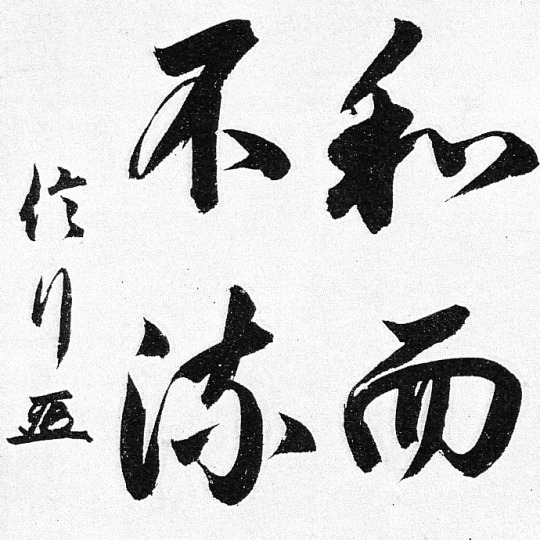 和而
不流
信行